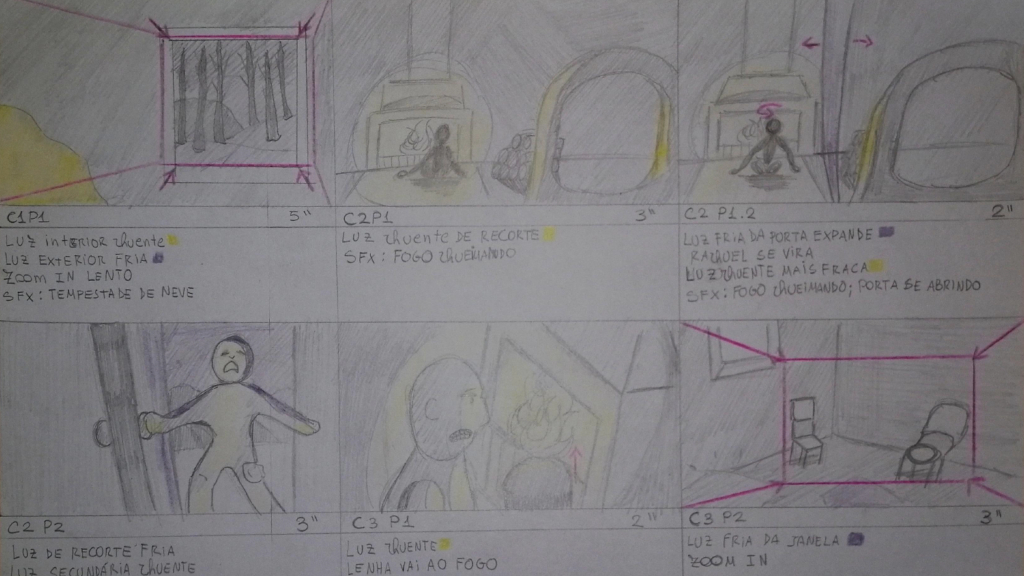 C1P1 5"
LUZ interior quente
LUZ EXTERIOR FRIA
ZOOM IN LENTO
SFX: TEMPESTADE DE NEVE
C2P1 3"
LUZ quente DE RECORTE
SFX: FOGO queimando
C2 P1.2 2"
LUZ FRIA DA PORTA EXPANDE
RAQUEL SE VIRA
LUZ quente MAIS FRACA
SFX: FOGO queimando; PORTA SE ABRINDO
C2 P2 3"
LUZ DE RECORTE FRIA
LUZ SECUNDÁRIA quente
C3 P1 2"
LUZ quente
LENHA VAI AO FOGO
C3 P2 3"
LUZ FRIA DA JANELA
ZOOM IN